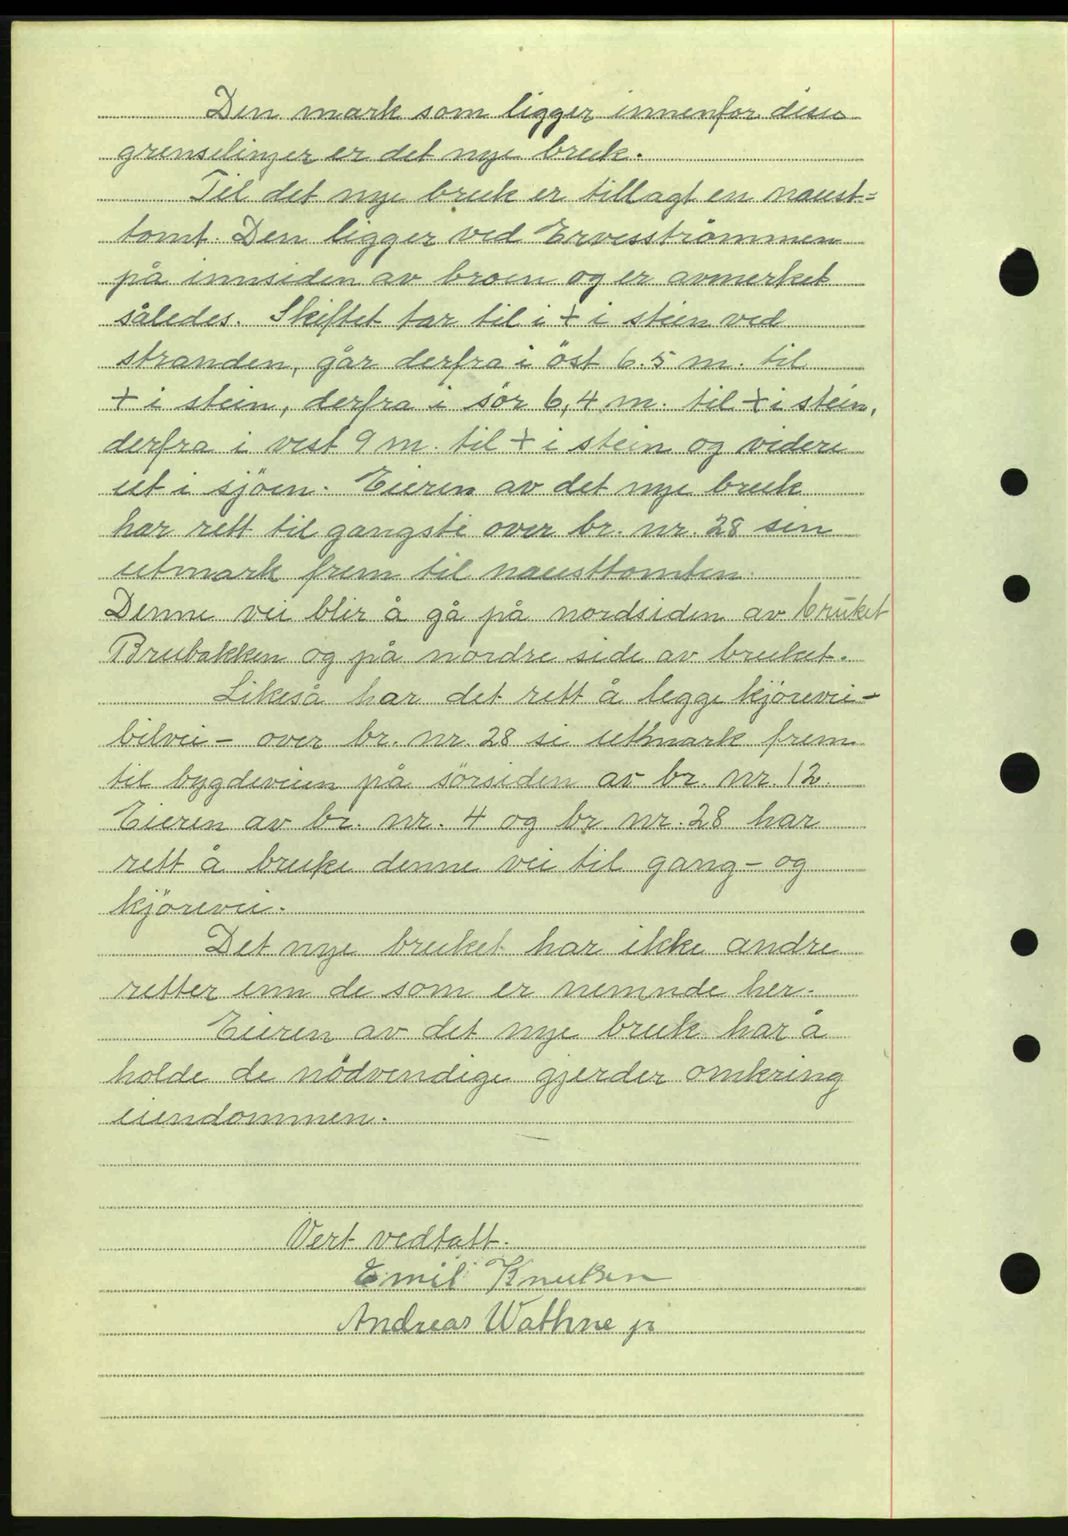 Den mark som ligger innenfor disse
grenselinjer er det nye bruk.
Til det nye bruk er tillagt en naust=
tomt. Den ligger ved Ervesströmmen
på innsiden av broen og er avmerket
således. Skiftet tar til i + i stein ved
stranden, går derfra i öst 6.5 m. til
+ i stein, derfra i sör 6,4 m. til + i stein,
derfra i vest 9 m. til + i stein og videre
ut i sjöen. Eieren av det nye bruk
har rett til gangsti over br. nr. 28 sin
utmark frem til nausttomten.
Denne vei blir å gå på nordsiden av bruket
Brubakken og på nordre side av bruket.
Likeså har det rett å legge kjörevei-
bilvei - over br. nr. 28 si utmark frem
til bygdeveien på sörsiden av br. nr. 12.
Eieren av br. nr. 4 og br. nr. 28 har
rett å bruke denne vei til gang- og
kjörevei.
Det nye bruket har ikke andre
retter enn de som er nemnde her.
Eieren av det nye bruk har å
holde de nödvendige gjerder omkring
eiendommen.
Vert vedtatt.
Emil Knutsen
Andreas Wathne jr